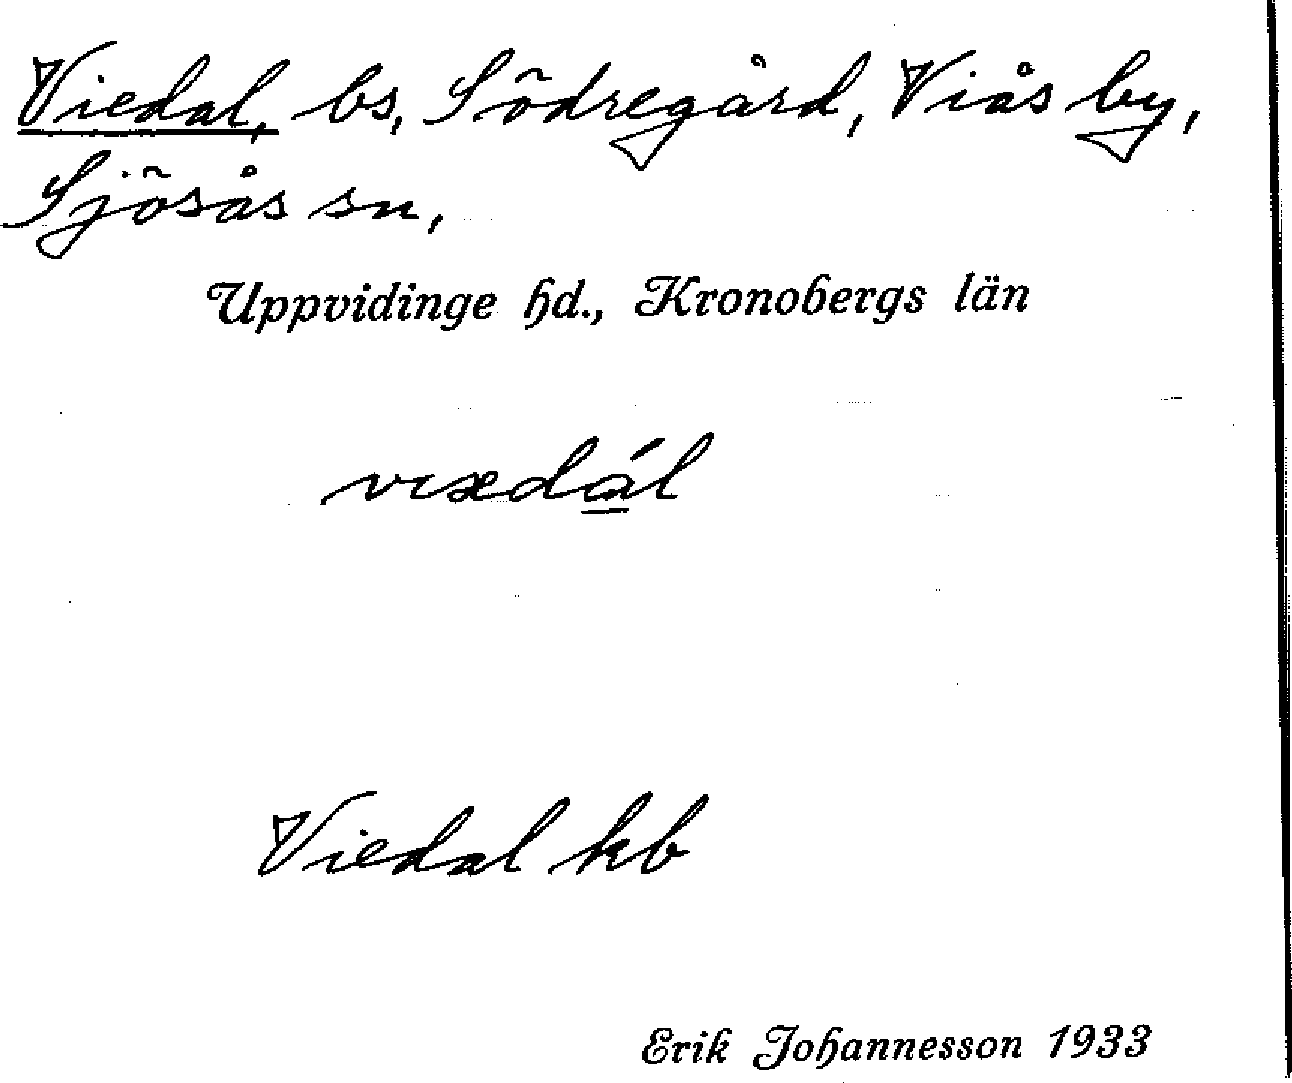 Viedal, bs, Södregård, Viås by,
Sjösås sn,
Uppvidinge hd., Kronobergs län
viædál
Viedal kb
Erik Johannesson 1933